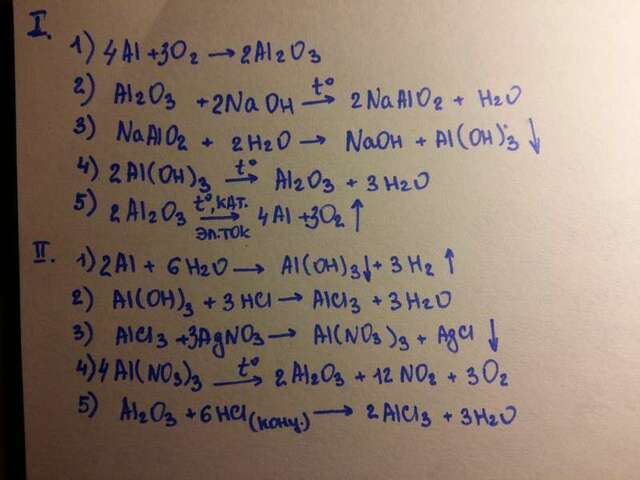 I.
1) 4Al + 3O₂ → 2Al₂O₃
2) Al₂O₃ + 2NaOH t° → 2NaAlO₂ + H₂O
3) NaAlO₂ + 2H₂O → NaOH + Al(OH)₃ ↓
4) 2Al(OH)₃ t° → Al₂O₃ + 3H₂O
5) 2Al₂O₃ t°, кат. → эл.ток 4Al + 3O₂ ↑
II.
1) 2Al + 6H₂O → Al(OH)₃↓ + 3H₂ ↑
2) Al(OH)₃ + 3HCl → AlCl₃ + 3H₂O
3) AlCl₃ + 3AgNO₃ → Al(NO₃)₃ + AgCl ↓
4) 4Al(NO₃)₃ t° → 2Al₂O₃ + 12NO₂ + 3O₂
5) Al₂O₃ + 6HCl (конц.) → 2AlCl₃ + 3H₂O